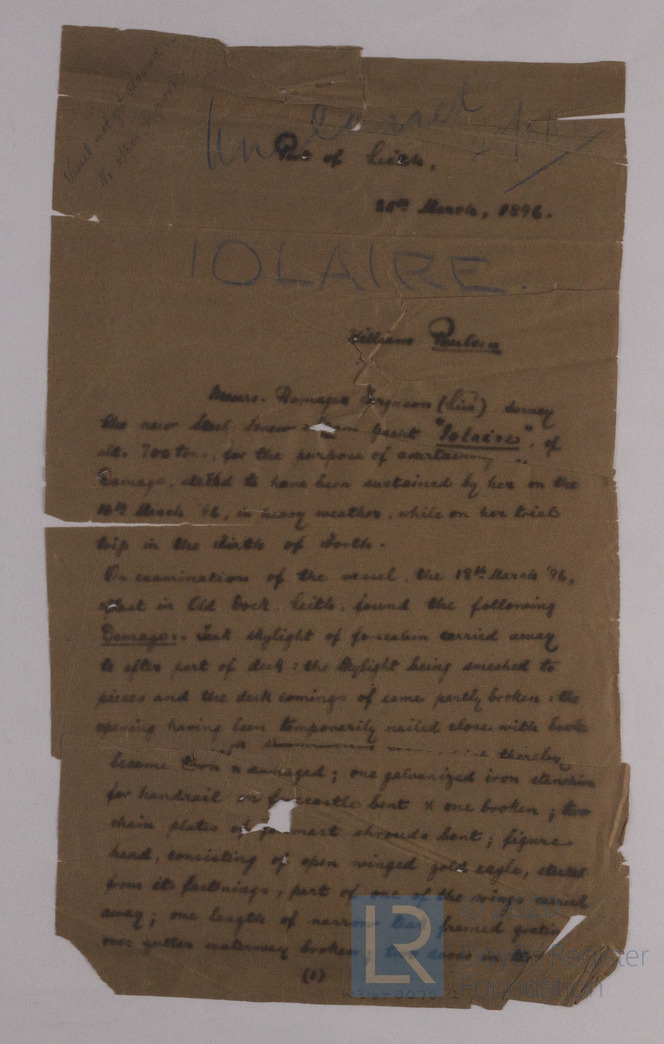 Vessel not yet classed
No other Report
Port of Leith.
20th March, 1896.
IOLAIRE.
William
Messrs. Ramage & Ferguson (Ltd) survey
the new Steel Screw Yacht "Iolaire", of
700 tons, for the purpose of ascertaining
Damage, stated to have been sustained by her on the
16th March '96, in heavy weather, while on her trial
trip in the Firth of Forth.
On examination of the vessel, the 18th March '96,
afloat in Old Dock, Leith, found the following
Damage:. Teak skylight of forecabin carried away
to after part of deck: the skylight being smashed to
pieces and the deck comings of same partly broken: the
opening having been temporarily nailed close with
thereby
became torn & damaged; one galvanized iron stanchion
for handrail on forecastle bent & one broken; two
chain plates of foremast shrouds bent; figure
head, consisting of open winged gold eagle, started
from its fastenings, part of one of the wings carried
away; one length of narrow teak framed grating
over gutter waterway broken; two doors in
(1)
LR
Lloyd's Register
Foundation